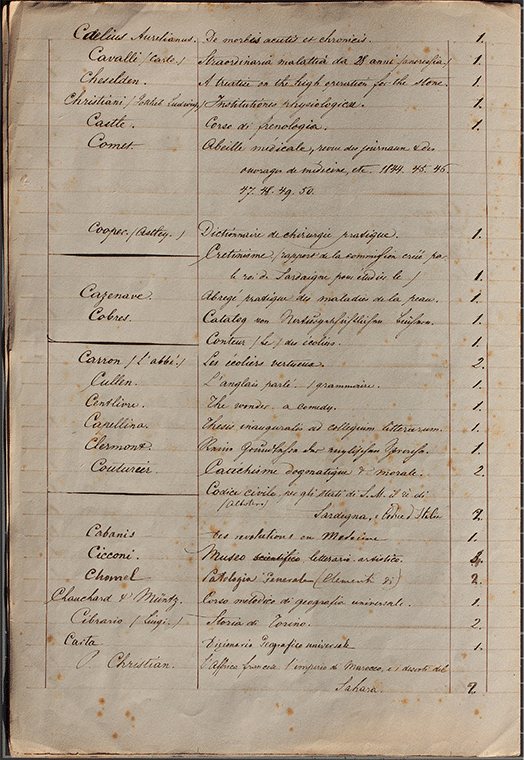 Cælius Aurelianus. De morbis acutis et chronicis. 1.
Cavalli /Carlo./ Straordinaria malattia da 28 anni 1.
Cheselden. A treatise on the high operation for the stone. 1.
Christiani / Ludwig,/ Institutiones physiologicæ. 1.
Castle. Corso di frenologia. 1.
Comet Abeille médicale, revue des journaux & des
ouvrages de médecine, etc. 1844. 45. 46.
47. 48. 49. 50.
Cooper /Asthley./ Dictionnaire de chirurgie pratique. 1.
Crétinisme /rapport de la commission créé pa
le roi de Sardaigne pour étudier le / 1.
Cazenave. Abrégé pratique des maladies de la peau. 1.
Cobres. Catalog von 1.
Conteur /Le/ des écoliers. 1.
Carron /l'abbé./ Les écoliers vertueux. 2.
Cullen. L'anglais parlé. /grammaire. 1.
Centlivre. The wonder. a comedy. 1.
Capellina. Thesis inauguralis ad collegium litterarum. 1.
Clermont. 1.
Couturier. Catéchisme dogmatique & morale. 2.
Codice civile per gli stati di S. M. il rè di
(Albertino)
Sardegna, 2.
Cabanis des revolutions en Medecine 1.
Cicconi. Museo scientifico letterario artistico.
Chomel Patologia Generale (Elementi di) 2.
Chauchard & Müntz. Corso metodico di geografia universale. 1.
Cibrario /Luigi./ Storia di Torino. 2.
Carta Dizionario Geografico universale 1.
P Christian. L'Affrica francese l'imperio di Marocco, e i deserti del
Sahara. 2.